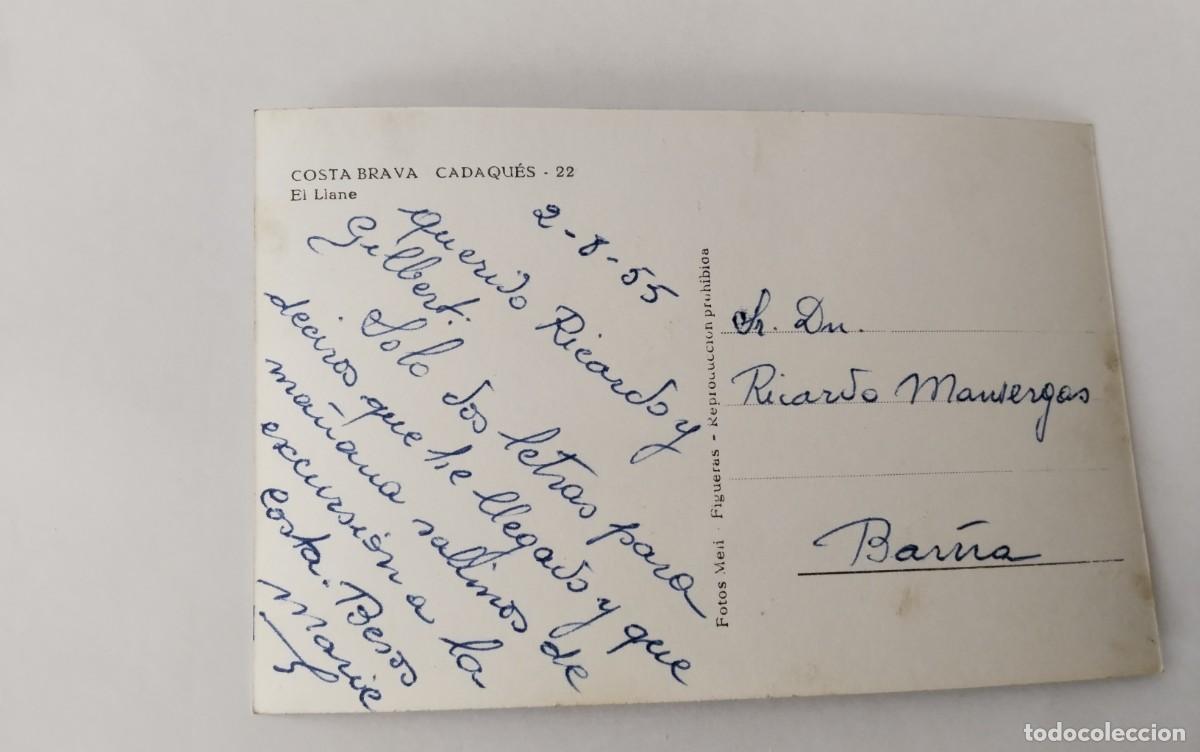 COSTA BRAVA CADAQUÉS - 22
El Llane
2-8-55
Querido Ricardo y
Gilbert:
Solo dos letras para
deciros que he llegado y que
mañana salimos de
excursión a la
Costa. Besos
Marie
Fotos Meli - Figueras - Reproducción prohibida
Sr. Dn.
Ricardo
Barna
todocoleccion